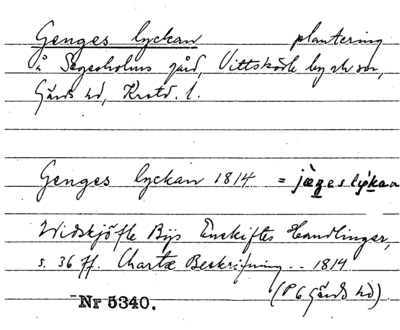 Genges lyckan plantering
å Segesholms gård, Vittskövle by och sn,
Gärds hd, Krstd. l.
Genges lyckan 1814 = jæŋeslykan
Widskjöfle Bijs Enskiftes Handlinger,
s. 36 ff. Chartæ Beskrifning -- 1814
(P 6 Gärds hd)
Nr 5340.